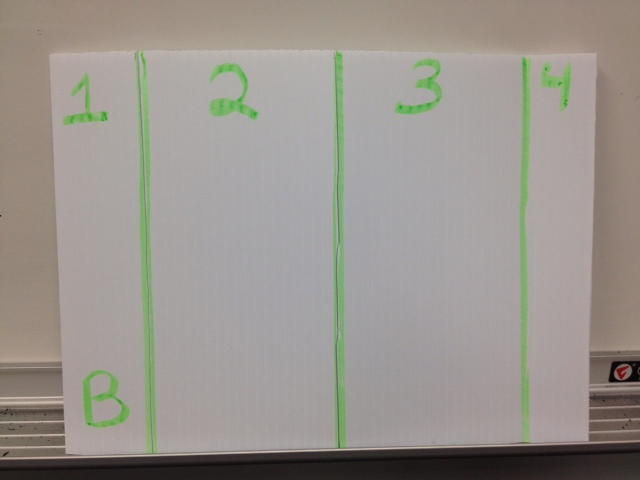 1 2 3 4
B